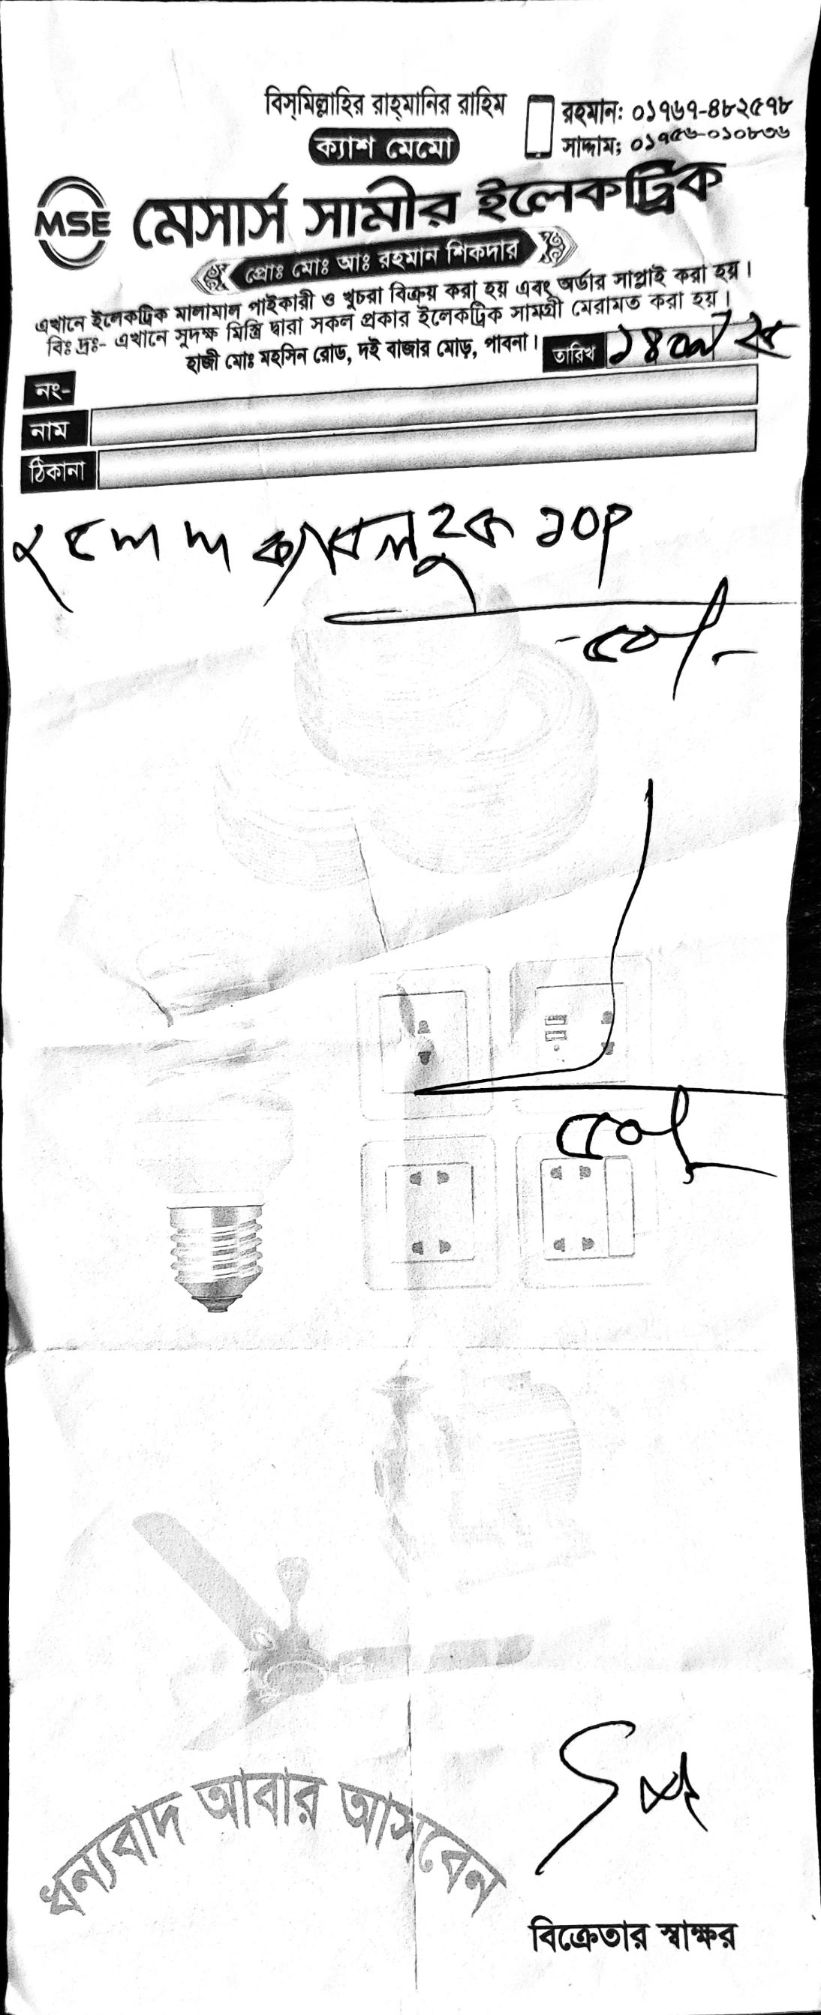 বিস্‌মিল্লাহির রাহ্‌মানির রাহিম
ক্যাশ মেমো
রহমান: ০১৭৬৭-৪৮২৫৭৮
সাদ্দাম: ০১৭৫৬-০১০৮৩৬
MSE মেসার্স সামীর ইলেকট্রিক
প্রোঃ মোঃ আঃ রহমান শিকদার
এখানে ইলেকট্রিক মালামাল পাইকারী ও খুচরা বিক্রয় করা হয় এবং অর্ডার সাপ্লাই করা হয়।
বিঃ দ্রঃ- এখানে সুদক্ষ মিস্ত্রি দ্বারা সকল প্রকার ইলেকট্রিক সামগ্রী মেরামত করা হয়।
হাজী মোঃ মহসিন রোড, দই বাজার মোড়, পাবনা।
তারিখ
নং-
নাম
ঠিকানা
ক্যাবল হুক ১০P
ধন্যবাদ আবার আসবেন
বিক্রেতার স্বাক্ষর